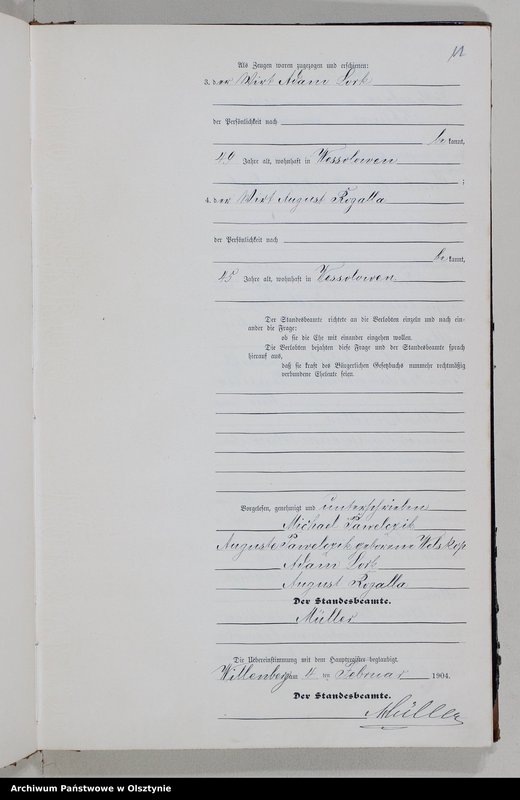 Als Zeugen waren zugezogen und erschienen:
3. der Wirt Adam Sork
der Persönlichkeit nach
bekannt,
49 Jahre alt, wohnhaft in Wessolowen
;
4. der Wirt August Rogalla
der Persönlichkeit nach
bekannt,
45 Jahre alt, wohnhaft in Wessolowen
Der Standesbeamte richtete an die Verlobten einzeln und nach ein-
ander die Frage:
ob sie die Ehe mit einander eingehen wollen.
Die Verlobten bejahten diese Frage und der Standesbeamte sprach
hierauf aus,
daß sie kraft des Bürgerlichen Gesetzbuchs nunmehr rechtmäßig
verbundene Eheleute seien.
Vorgelesen, genehmigt und unterschrieben
Michael Pawelczik
Auguste Pawelczik geborene Welskop
Adam Sork
August Rogalla
Der Standesbeamte.
Müller
Die Uebereinstimmung mit dem Hauptregister beglaubigt.
Willenberg am 4 ten Februar 1904.
Der Standesbeamte.
Müller
Archiwum Państwowe w Olsztynie